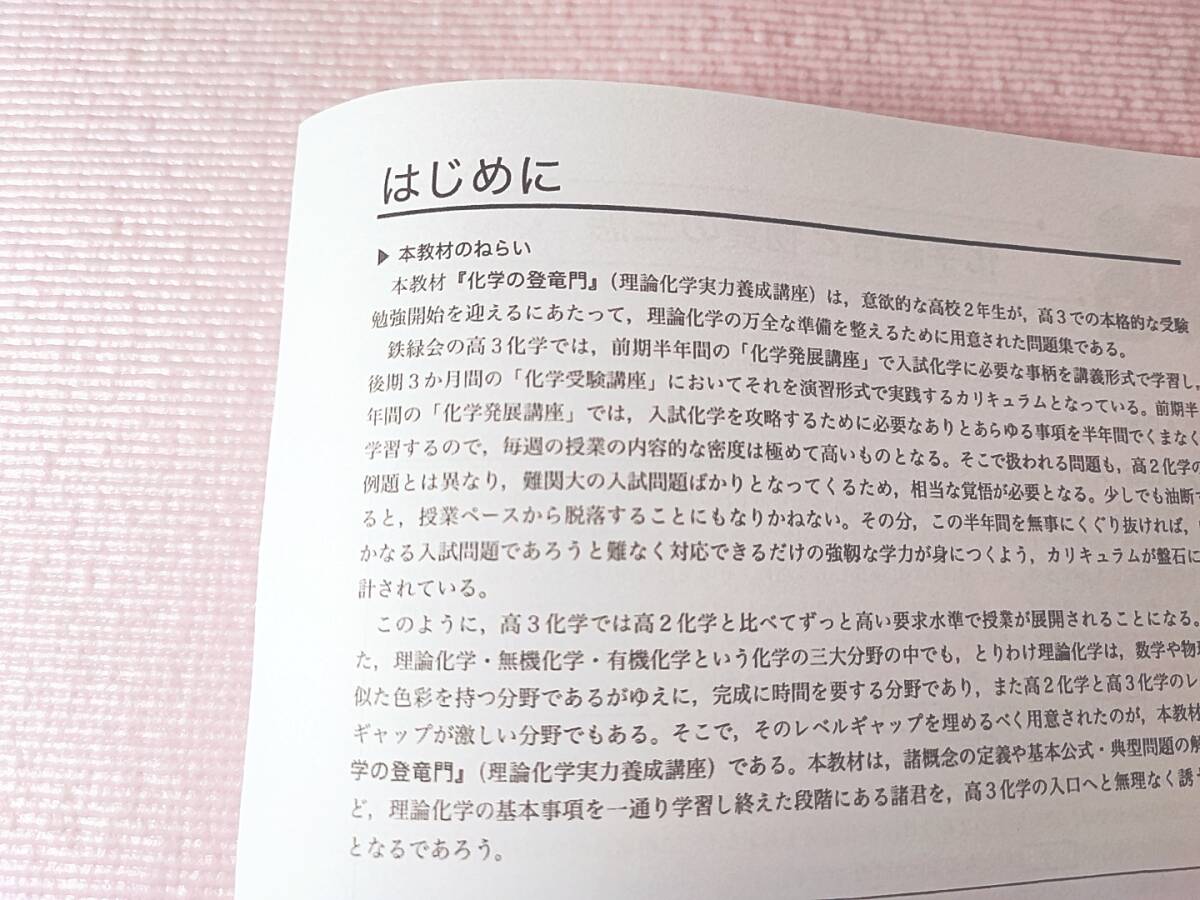 はじめに
▶ 本教材のねらい
本教材『化学の登竜門』(理論化学実力養成講座)は，意欲的な高校2年生が，高3での本格的な受験
勉強開始を迎えるにあたって，理論化学の万全な準備を整えるために用意された問題集である。
鉄緑会の高3化学では，前期半年間の「化学発展講座」で入試化学に必要な事柄を講義形式で学習し，
後期3か月間の「化学受験講座」においてそれを演習形式で実践するカリキュラムとなっている。前期半
年間の「化学発展講座」では，入試化学を攻略するために必要なありとあらゆる事項を半年間でくまなく
学習するので，毎週の授業の内容的な密度は極めて高いものとなる。そこで扱われる問題も，高2化学の
例題とは異なり，難関大の入試問題ばかりとなってくるため，相当な覚悟が必要となる。少しでも油断す
ると，授業ペースから脱落することにもなりかねない。その分，この半年間を無事にくぐり抜ければ，
かなる入試問題であろうと難なく対応できるだけの強靱な学力が身につくよう，カリキュラムが盤石に
計されている。
このように，高3化学では高2化学と比べてずっと高い要求水準で授業が展開されることになる。
た，理論化学・無機化学・有機化学という化学の三大分野の中でも，とりわけ理論化学は，数学や物理
似た色彩を持つ分野であるがゆえに，完成に時間を要する分野であり，また高2化学と高3化学のレ
ギャップが激しい分野でもある。そこで，そのレベルギャップを埋めるべく用意されたのが，本教材
学の登竜門』(理論化学実力養成講座)である。本教材は，諸概念の定義や基本公式・典型問題の解
ど，理論化学の基本事項を一通り学習し終えた段階にある諸君を，高3化学の入口へと無理なく誘
となるであろう。